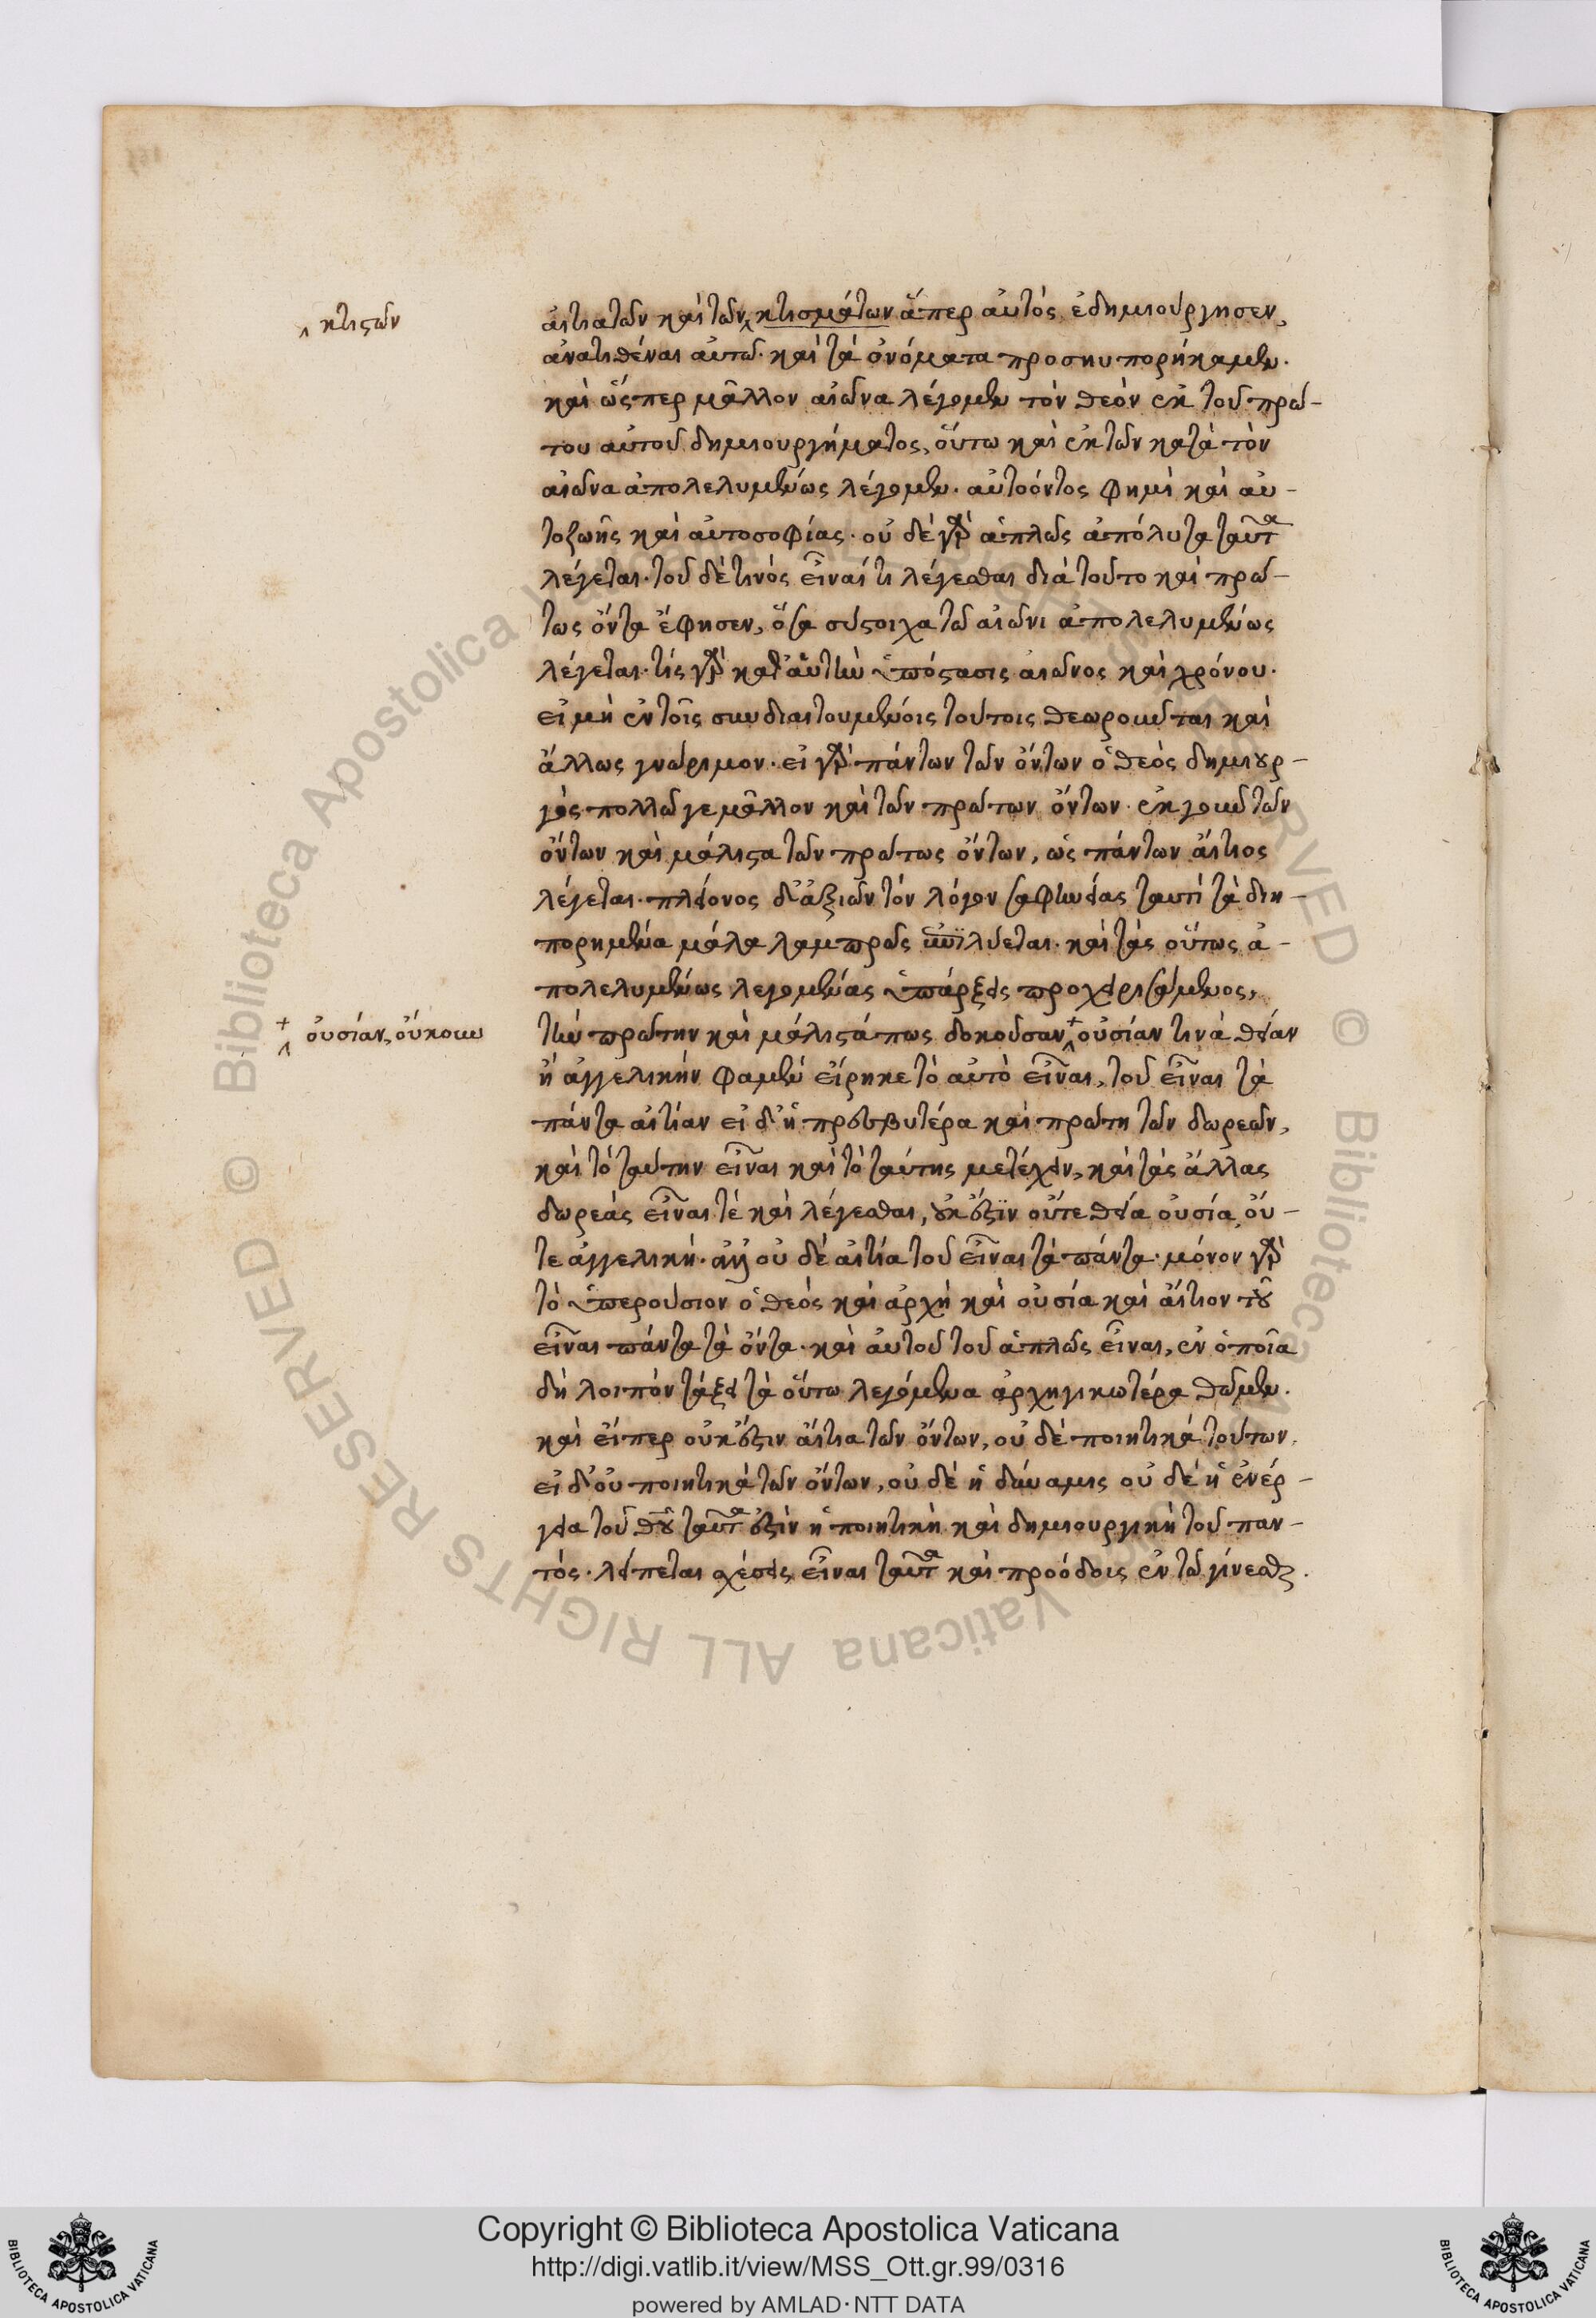 κτιστῶν
αἰτιατῶν καὶ τῶν κτισμάτων ἅπερ αὐτὸς ἐδημιούργησεν,
ἀνατιθέναι αὐτῶ· καὶ τὰ ὀνόματα προσηυπορήκαμεν.
καὶ ὥσπερ μᾶλλον αἰῶνα λέγομεν τὸν θεὸν ἐκ τοῦ πρώ-
του αὐτοῦ δημιουργήματος, οὕτω καὶ ἐκ τῶν κατὰ τὸν
αἰῶνα ἀπολελυμένως λέγομεν. αὐτοόντος φημὶ καὶ αὐ-
τοζωῆς καὶ αὐτοσοφίας· οὐ δὲ γὰρ ἁπλῶς ἀπόλυτα ταῦτα
λέγεται· τοῦ δὲ τινὸς εἶναί τι λέγεσθαι διὰ τοῦτο καὶ πρώ-
τως ὄντα ἔφησεν, ὅσα σύστοιχα τῶ αἰῶνι ἀπολελυμένως
λέγεται. τίς γὰρ καθ' αὑτὴν ὑπόστασις αἰῶνος καὶ χρόνου.
εἰ μὴ ἐν τοῖς συνδιαιτουμένοις τούτοις θεωροῦνται καὶ
ἄλλως γνώριμον. εἰ γὰρ πάντων τῶν ὄντων ὁ θεὸς δημιουρ-
γὸς πολλῶ γε μᾶλλον καὶ τῶν πρώτων ὄντων. ἐκ γοῦν τῶν
ὄντων καὶ μάλιστα τῶν πρώτως ὄντων, ὡς πάντων αἴτιος
λέγεται. πλείονος δ' ἀξιῶν τὸν λόγον σαφηνείας ταυτὶ τὰ διη-
πορημένα μάλα λαμπρῶς λύεται. καὶ τὰς οὕτως ἀ-
πολελυμένως λεγομένας ὑπάρξεις προχειρισάμενος,
οὐσίαν, οὔκουν
τὴν πρώτην καὶ μάλιστά πως δοκοῦσαν οὐσίαν τινὰ θείαν
ἢ ἀγγελικὴν φαμὲν εἴρηκε τὸ αὐτὸ εἶναι, τοῦ εἶναι τὰ
πάντα αἰτίαν εἰ δ' ἡ πρεσβυτέρα καὶ πρώτη τῶν δωρεῶν,
καὶ τὸ ταύτην εἶναι καὶ τὸ ταύτης μετέχειν, καὶ τὰς ἄλλας
δωρεὰς εἶναί τε καὶ λέγεσθαι, οὐκ ἔστιν οὔτε θεία οὐσία οὔ-
τε ἀγγελική. ἀλλ' οὐ δὲ αἰτία τοῦ εἶναι τὰ πάντα. μόνον γὰρ
τὸ ὑπερούσιον ὁ θεὸς καὶ ἀρχὴ καὶ οὐσία καὶ αἴτιον τοῦ
εἶναι πάντα τὰ ὄντα. καὶ αὐτοῦ τοῦ ἁπλῶς εἶναι, ἐν ὁποία
δὴ λοιπὸν τάξει τὰ οὕτω λεγόμενα ἀρχηγικωτέρα θῶμεν.
καὶ εἴπερ οὐκ ἔστιν αἴτια τῶν ὄντων, οὐ δὲ ποιητικὰ τούτων.
εἰ δ' οὐ ποιητικὰ τῶν ὄντων, οὐ δὲ ἡ δύναμις οὐ δὲ ἡ ἐνέρ-
γεια τοῦ θεοῦ ταῦτα ἐστὶν ἡ ποιητικὴ καὶ δημιουργικὴ τοῦ παν-
τός. λείπεται σχέσεις εἶναι ταῦτα καὶ προόδοις ἐν τῶ γίνεσθαι.
Copyright © Biblioteca Apostolica Vaticana
http://digi.vatlib.it/view/MSS_Ott.gr.99/0316
powered by AMLAD·NTT DATA
BIBLIOTECA APOSTOLICA VATICANA
BIBLIOTECA APOSTOLICA VATICANA